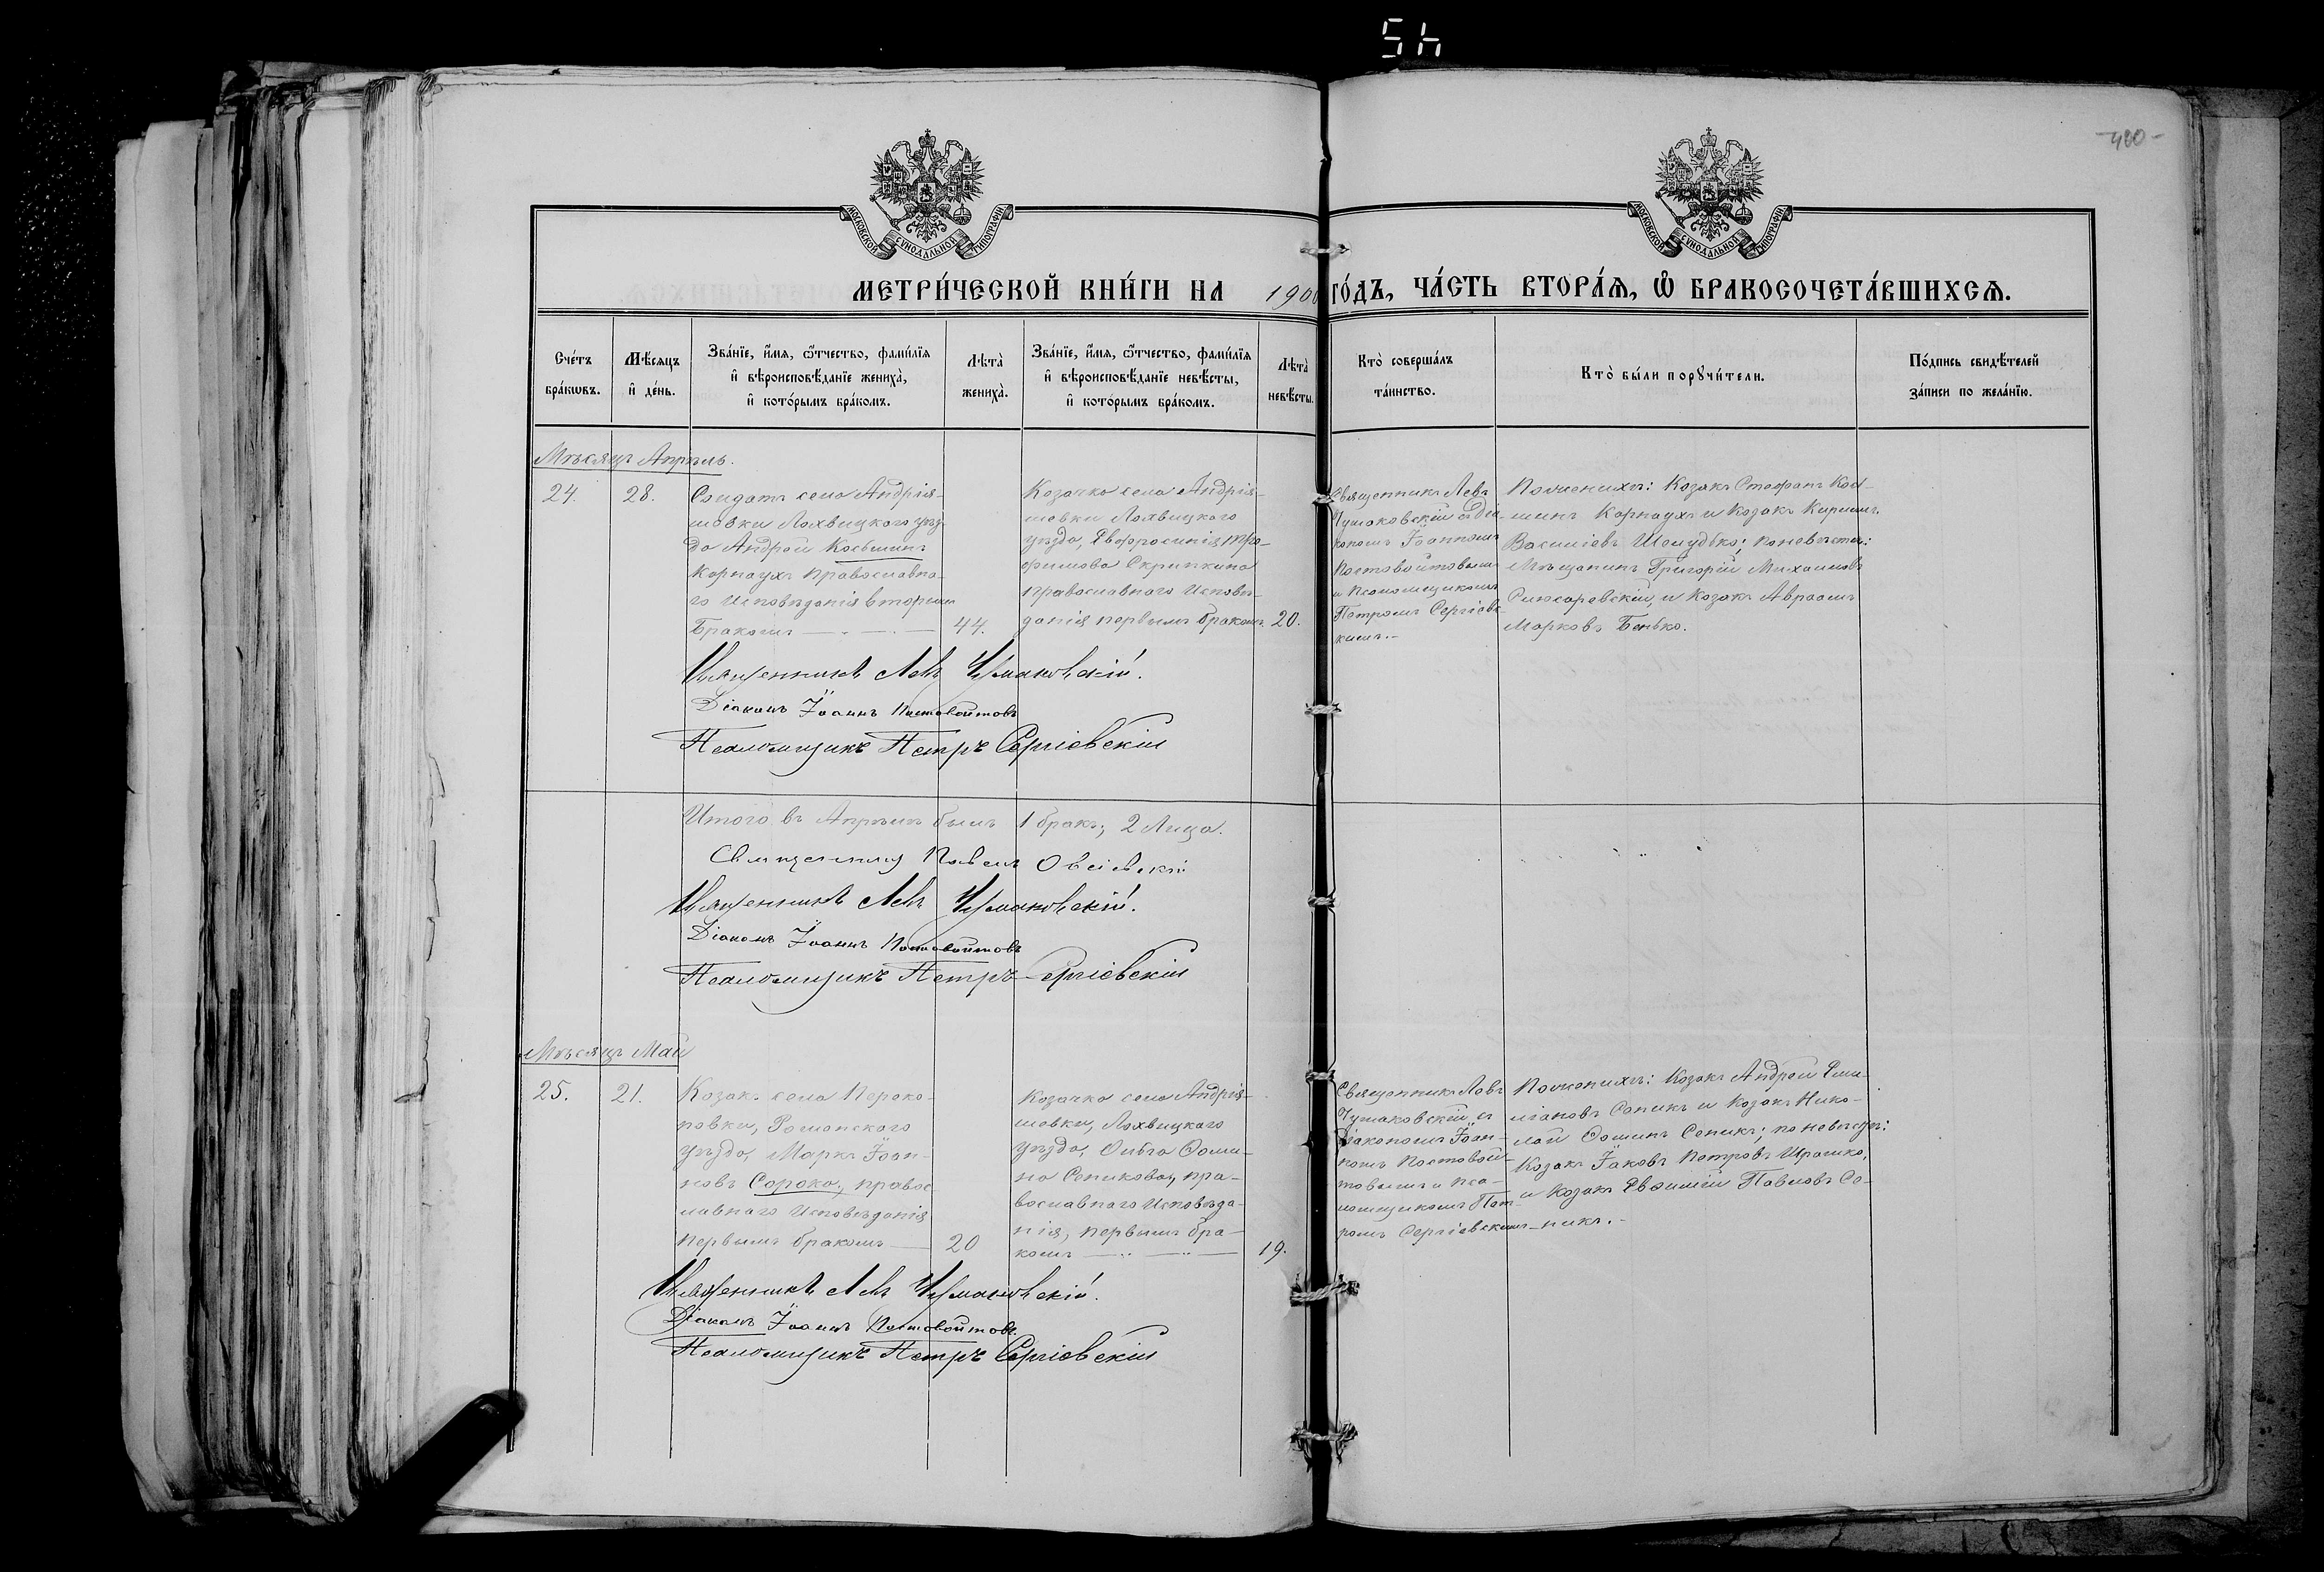 54
-400-
МОСКОВСКОЙ СѴНОДАЛЬНОЙ ТИПОГРАФІИ
МОСКОВСКОЙ СѴНОДАЛЬНОЙ ТИПОГРАФІИ
МЕТРИ́ЧЕСКОЙ КНИ́ГИ НА 1900 ГО́ДЪ, ЧА́СТЬ ВТОРА́Я, Ѽ БРАКОСОЧЕТА́ВШИХСЯ.
Сче́тъ бра́кѡвъ.
Мѣ́сяцъ и҆ де́нь.
Зва́нїе, и҆́мя, ѻ҆́тчество, фами́лїя
и҆ вѣроисповѣ́данїе жениха̀,
и҆ кото́рымъ бра́комъ.
Лѣта̀ жениха̀.
Зва́нїе, и҆́мя, ѻ҆́тчество, фами́лїя
и҆ вѣроисповѣ́данїе невѣ́сты,
и҆ кото́рымъ бра́комъ.
Лѣта̀ невѣ́сты.
Кто̀ соверша́лъ
та́инство.
Кто̀ бы́ли порꙋчи́тели.
По́дпись свидѣ́телей
за́писи по жела́нїю.
Мѣсяцъ Апрѣль.
24.
28.
Солдатъ села Андрія-
шовки Лохвицкаго уѣз-
да Андрей Косьминъ
Карнаухъ православна-
го исповѣданія вторымъ
бракомъ
44.
Козачка села Андрія-
шовки Лохвицкаго
уѣзда, Евфросинія Тро-
фимова Скрипкина
православнаго исповѣ-
данія первымъ бракомъ.
20.
Священникъ Левъ
Чумаковскій съ Діа-
кономъ Іоанномъ
Постовойтовымъ
и псаломщикомъ
Петромъ Сергіевс-
кимъ.-
По женихѣ: Козакъ Стефанъ Кось-
минъ Карнаухъ и Козакъ Кириллъ
Василіевъ Шелудько; по невѣстѣ:
Мѣщанинъ Григорій Михаиловъ
и Козакъ Авраамъ
Марковъ Бенько.
Священникъ Левъ Чумаковскій.
Діаконъ Іоаннъ Постовойтовъ
Псаломщикъ Петръ Сергіевскій
Итого въ Апрѣлѣ былъ 1 бракъ; 2 Лица.
Священникъ Павелъ Овсіевскій
Священникъ Левъ Чумаковскій.
Діаконъ Іоаннъ Постовойтовъ
Псаломщикъ Петръ Сергіевскій
Мѣсяцъ Май
25.
21.
Козакъ села Переко-
повки, Роменскаго
уѣзда, Маркъ Іоан-
новъ Сорока, правос-
лавнаго исповѣданія
первымъ бракомъ
20
Козачка села Андрія-
шовки, Лохвицкаго
уѣзда, Ольга Фоми-
на Сепикова, пра-
вославнаго исповѣда-
нія, первымъ бра-
комъ
19.
Священникъ Левъ
Чумаковскій съ
Діакономъ Іоан-
номъ Постовой-
товымъ и пса-
ломщикомъ Пет-
ромъ Сергіевскимъ
По женихѣ: Козакъ Андрей Еми-
ліановъ Сепикъ и Козакъ Нико-
лай Фоминъ Сепикъ; по невѣстѣ:
Козакъ Іаковъ Петровъ
и Козакъ Евфимій Павловъ Се-
пикъ.-
Священникъ Левъ Чумаковскій.
Діаконъ Іоаннъ Постовойтовъ.
Псаломщикъ Петръ Сергіевскій